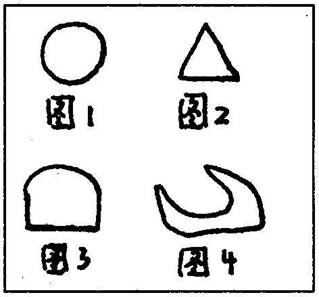 图1
图2
图3
图4